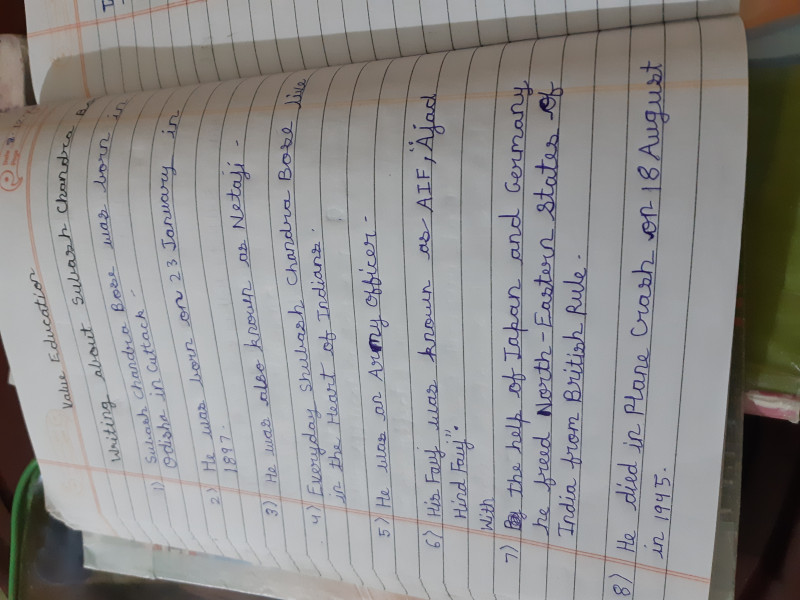 Value Education
Writing about Subash Chandra Bo
1) Subash Chandra Bose was born in
Odisha in Cuttack.
2) He was born on 23 January in
1897.
3) He was also known as Netaji.
4) Everyday Shubash Chandra Bose live
in the Heart of Indians.
5) He was an Army Officer.
6) His Fauj was known as AIF, "Ajad
Hind Fauj".
With
7) the help of Japan and Germany
he freed North-Eastern States of
India from British Rule.
8) He died in Plane Crash on 18 August
in 1945.